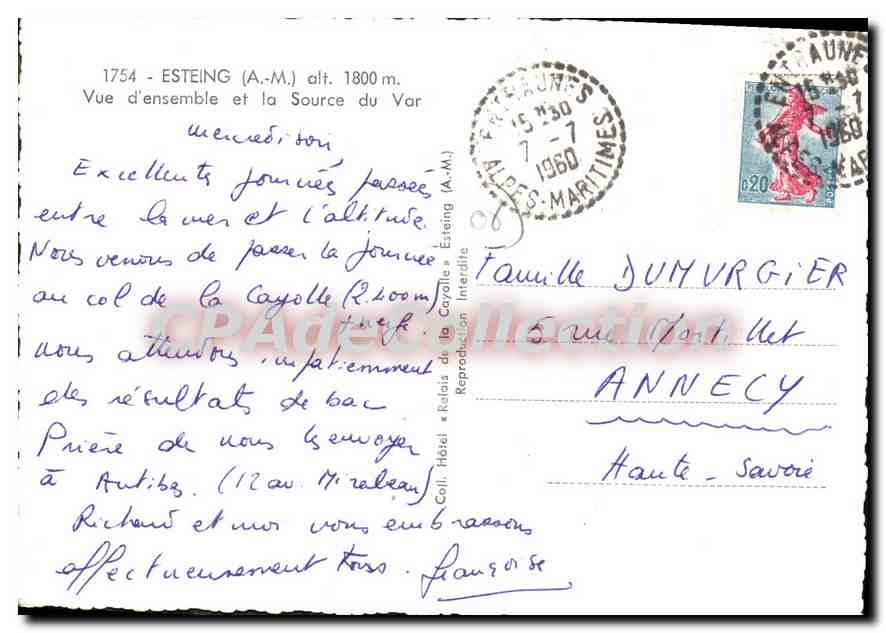 1754 - ESTEING (A.-M.) alt. 1800 m.
Vue d'ensemble et la Source du Var
mercredi soir
Excellentes journées passées
entre la mer et l'altitude.
Nous venons de passer la journée
au col de la Cayolle (2.400m)
+ neige.
nous attendons impatiemment
des résultats de bac
Prière de nous les envoyer
à Antibes. (12 av. Mirabeau)
Richard et moi vous embrassons
affectueusement tous. Françoise
Coll. Hôtel « Relais de la Cayolle » Esteing (A.-M.)
Reproduction Interdite
ENTRAUNES
15 H 30
7 - 7
1960
ALPES-MARITIMES
06
ENTRAUNES
15 H 30
7 - 7
1960
0,20
Famille DUMURGIER
5 rue Mortillet
ANNECY
Haute-Savoie
CPAdeCollection